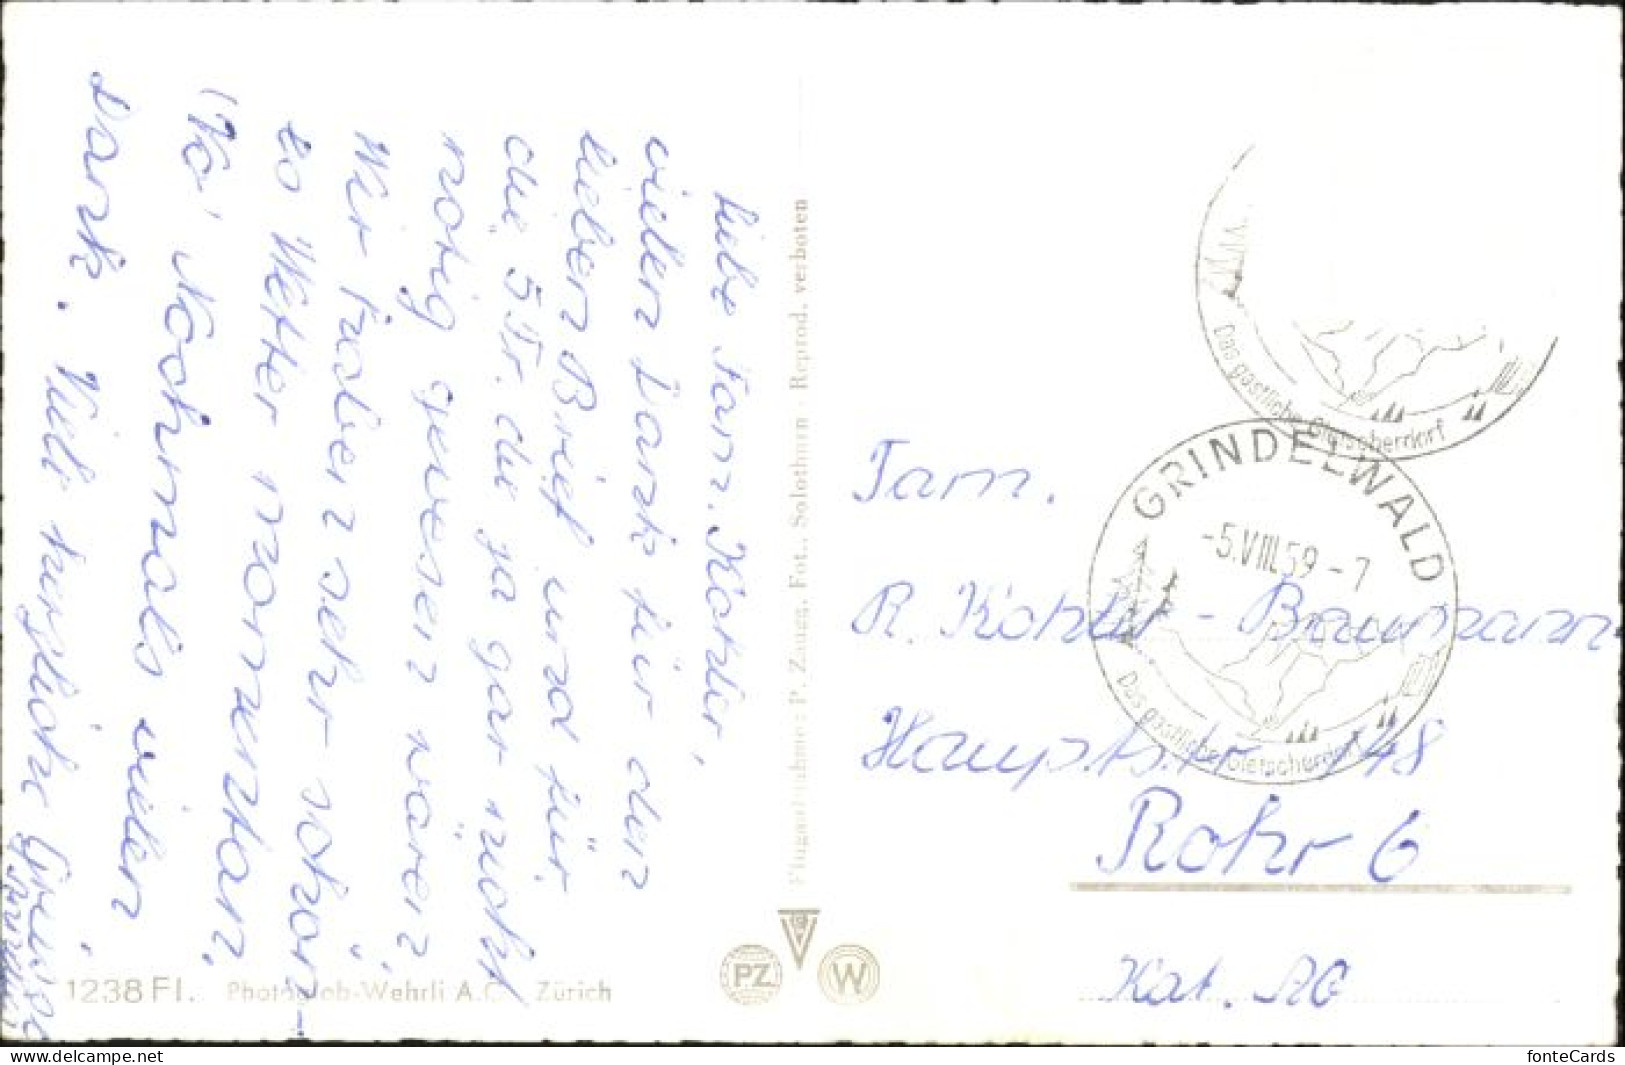 Liebe Fam. Kohler,
vielen Dank für den
lieben Brief und für
die 5 Fr. die ja gar nicht
nötig gewesen wären,
Wir haben sehr schön-
es Wetter momentan,
Nochmals vielen
Dank. Viele herzliche Grüsse
Flugaufnahme: P. Zaugg, Fot., Solothurn - Reprod. verboten
1238 Fl. Photoglob-Wehrli A.G. Zürich
PZ
W
Das gastliche Gletscherdorf
GRINDELWALD
-5.VIII.59-7
Das gastliche Gletscherdorf
Fam.
R. Kohler - Baumann
Hauptstr 148
Rohr 6
Kat. AG
delcampe.net
fonteCards